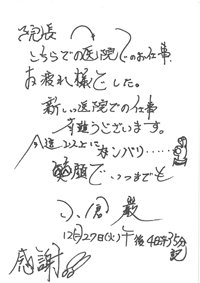 院長へ
こちらでの医院でのお仕事
お疲れ様でした。
新しい医院での仕事
有難うございます。
今迄以上に ガンバリ……
笑顔で、いつまでも
小倉 巖
12月27日(火)午後4時35分
記
感謝